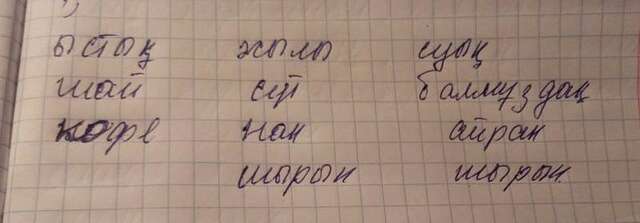 ыстық жылы суық
шай сүт балмұздақ
кофе нан айран
шырын шырын